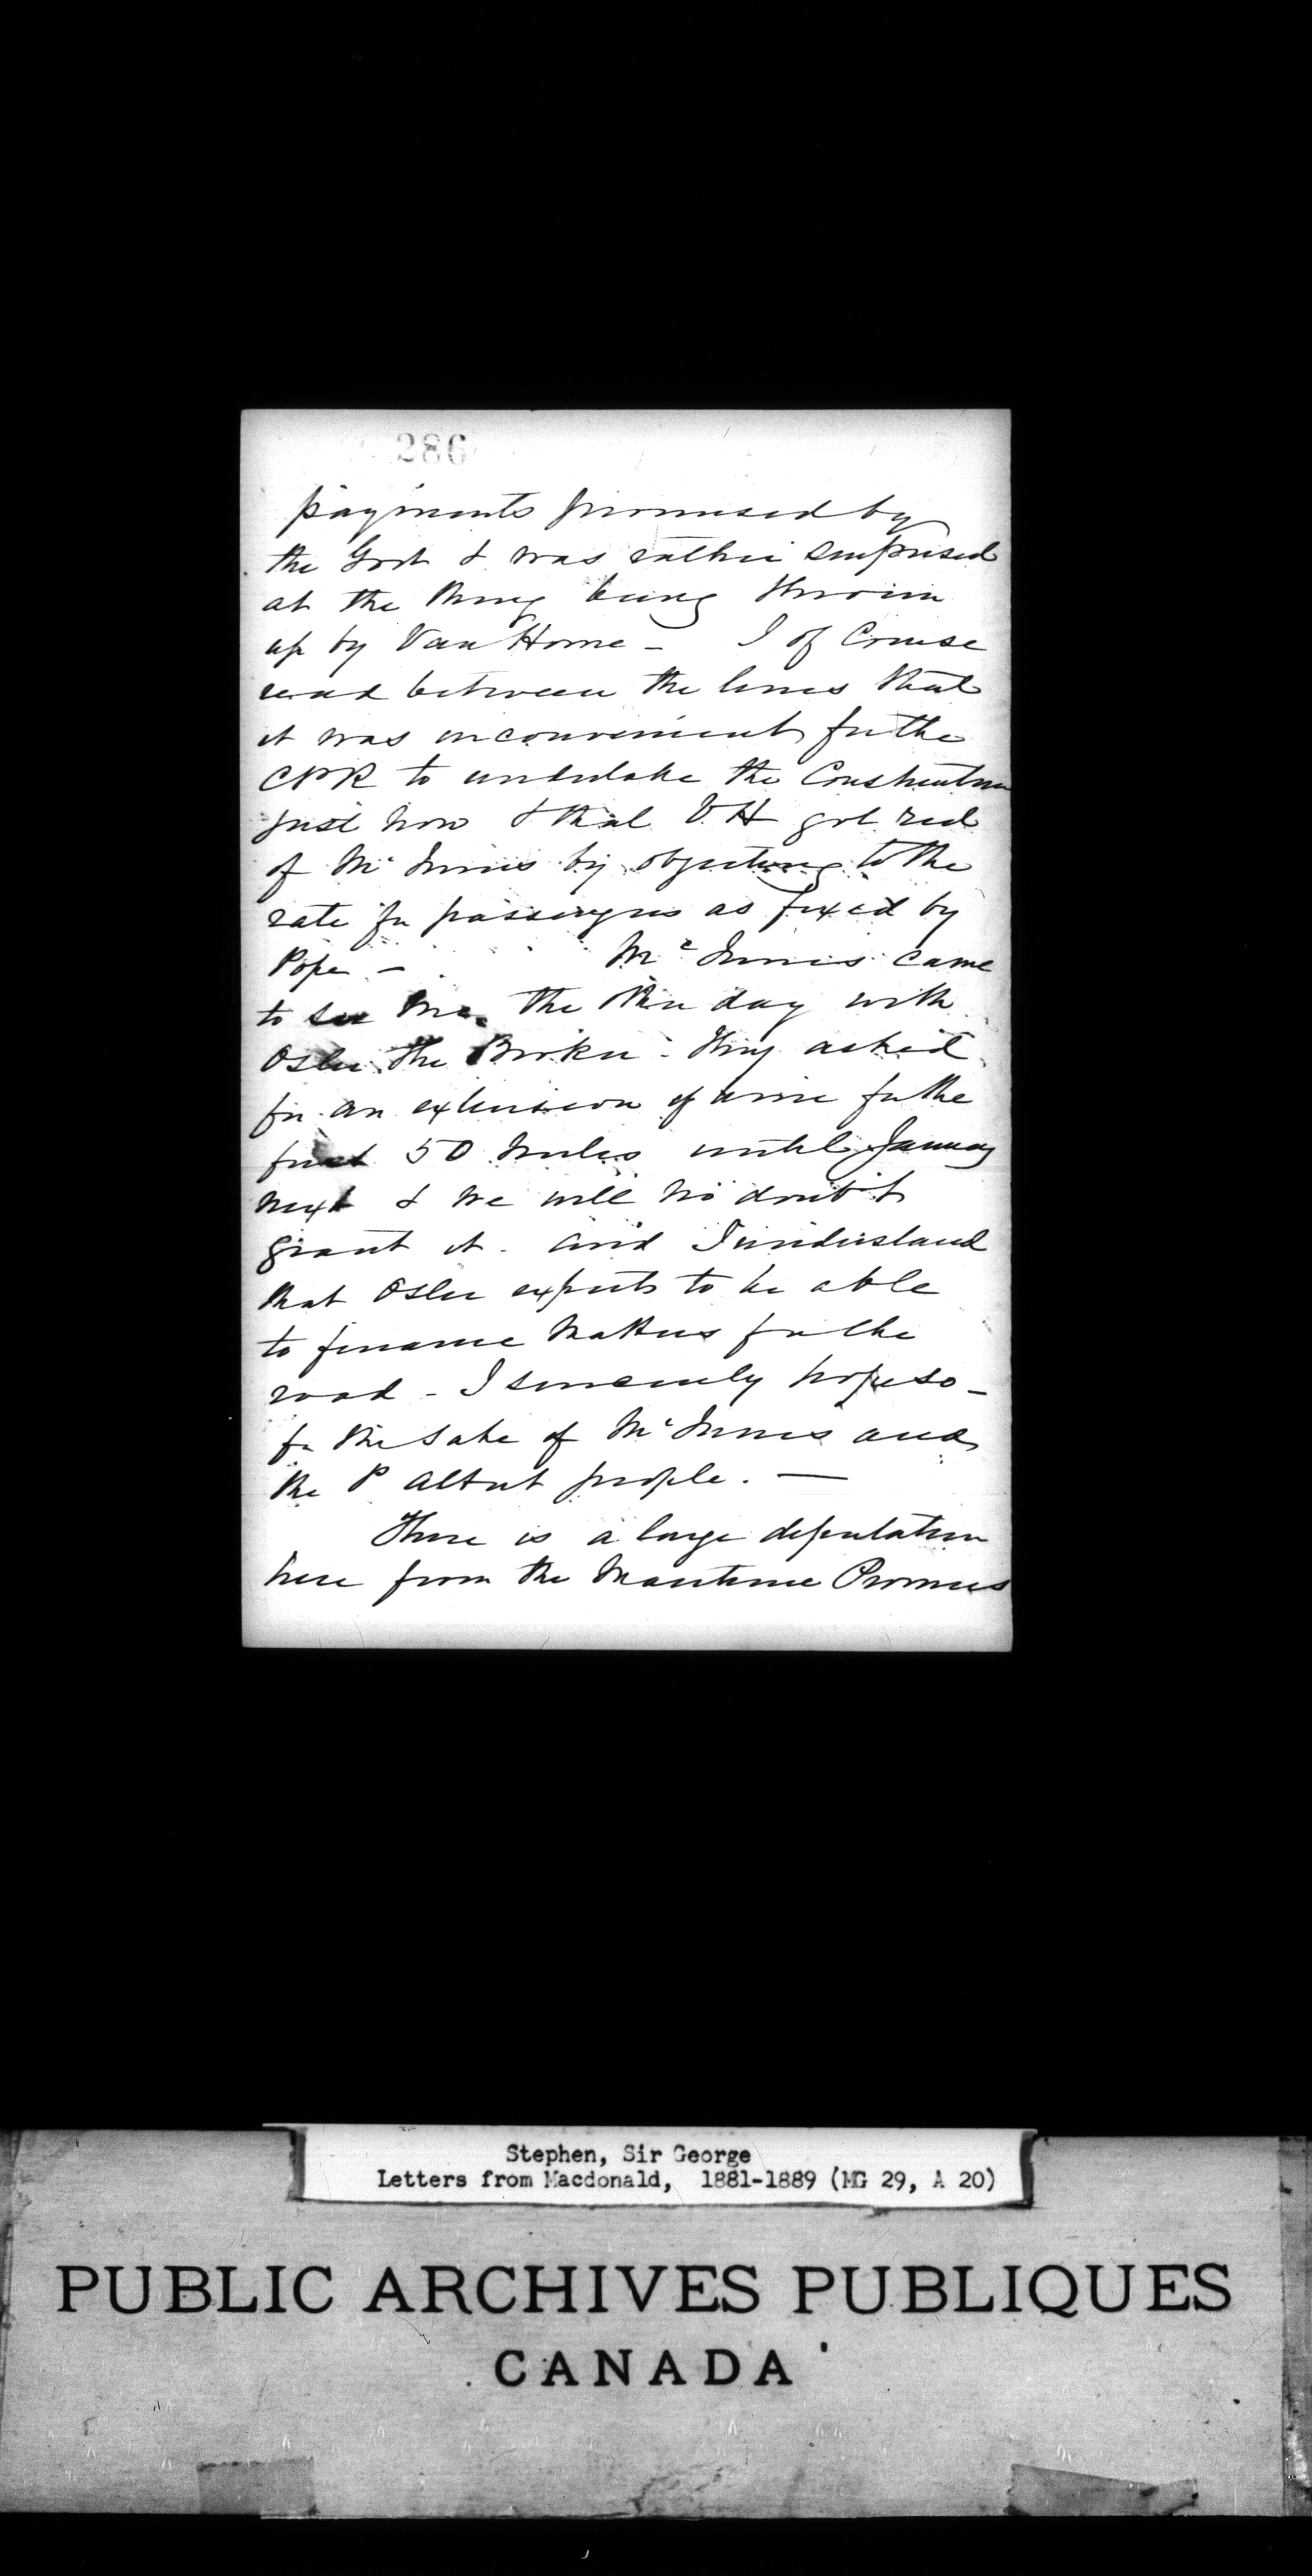 286
payments promised by
the Govt & was rather surprised
at the thing being thrown
up by Van Horne - I of course
read between the lines that
it was inconvenient for the
CPR to undertake the Construction
just now & that V.H got rid
of McInnis by objecting to the
rate for passengers as fixed by
Pope - McInnis came
to see me the other day with
Osler the Broker - they asked
for an extension of time for the
first 50 miles until January
next & we will no doubt
grant it. And I understand
that Osler expects to be able
to finance matters for the
road - I sincerely hope so -
for the sake of McInnis and
the P Albert people. -
There is a large deputation
here from the Maritime Provinces
Stephen, Sir George
Letters from Macdonald, 1881-1889 (MG 29, A 20)
PUBLIC ARCHIVES PUBLIQUES
CANADA